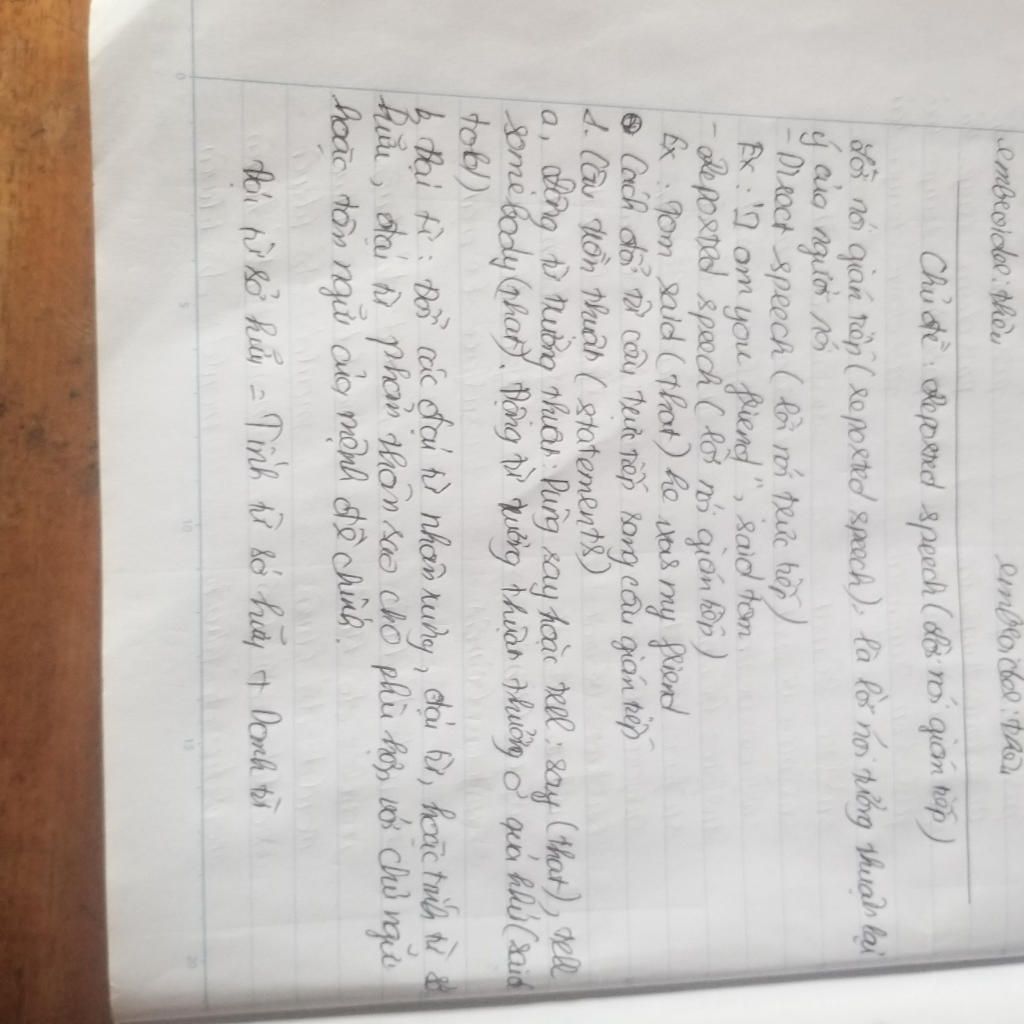 embroider: thêu embroider: thêu
Chủ đề: Reported speech (lời nói gián tiếp)
Lời nói gián tiếp (reported speech): là lời nói tường thuật lại
ý của người nói
- Direct speech (lời nói trực tiếp)
Ex: "I am you friend", said tom
- Reported speech (lời nói gián tiếp)
Ex: Tom said (that) he was my friend
Cách đổi từ câu trực tiếp sang câu gián tiếp
1. Câu trần thuật (statements)
a, động từ tường thuật: Dùng say hoặc tell: say (that), tell
somebody (that). Động từ tường thuật thường ở quá khứ (said
told)
b, đại từ: đổi các đại từ nhân xưng, đại từ, hoặc tính từ sở
hữu, đại từ phản thân sao cho phù hợp với chủ ngữ
hoặc tân ngữ của mệnh đề chính.
Đại từ sở hữu = Tính từ sở hữu + Danh từ